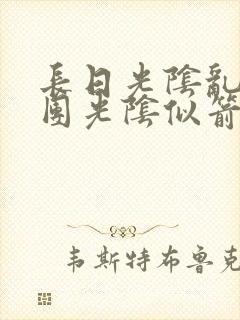 長日光陰亂
團光陰似箭
韦斯特布鲁克